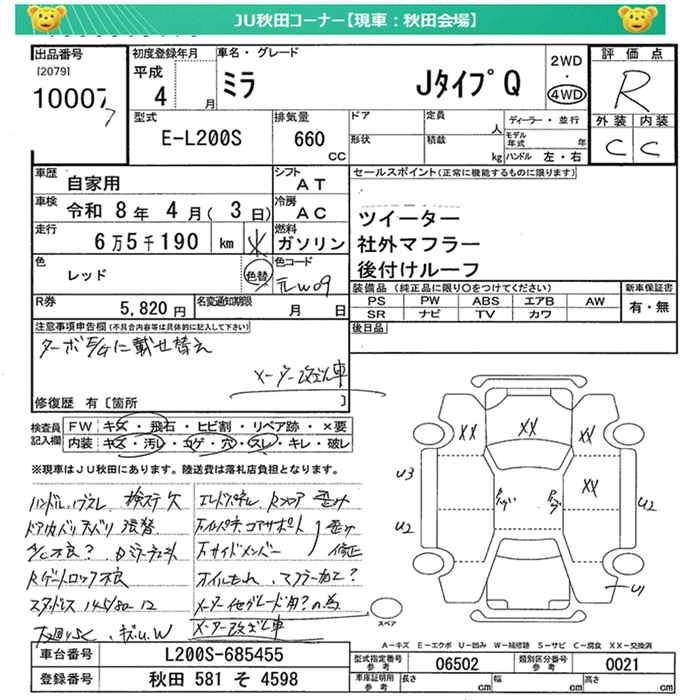 JU秋田コーナー【現車：秋田会場】
出品番号
[2079]
10007
7
初度登録年月
平成
4 月
車名・グレード
ミラ JタイプQ
2WD
・
4WD
評価点
R
外装 内装
C C
型式
E-L200S
排気量
660 CC
ドア
形状
定員 人
積載 kg
ディーラー・並行
モデル年式 年
ハンドル 左・右
車歴
自家用
シフト
AT
車検
令和 8年 4月( 3日)
冷房
AC
走行
6万5千190 km
燃料
ガソリン
色
レッド
色替
色コード
R券
5,820円
名変通知期限
月 日
セールスポイント(正常に機能するものに限ります)
ツイーター
社外マフラー
後付けルーフ
装備品(純正品に限り○をつけてください)
PS PW ABS エアB AW
SR ナビ TV カワ
新車保証書
有・無
後日品
注意事項申告欄(不具合内容等は具体的に記入して下さい)
ターボE/Gに載せ替え
メーター改ざん車
修復歴 有〔箇所 〕
検査員記入欄
FW キズ・飛石・ヒビ割・リペア跡・×要
内装 キズ・汚レ・コゲ・穴・スレ・キレ・破レ
※現車はJU秋田にあります。陸送費は落札店負担となります。
ハンドル、
A/C不良？
Rゲートロック不良
スタッドレス 145/80-12
エンドパネル、Rフロア 歪み
歪み
修正
オイルもれ、マフラー加工？
メーター他グレード用？の為
メーター改ざん車
XX XX XX
XX
U3
U2
U2
U1
スペア
A－キズ E－エクボ U－凹み W－補修跡 S－サビ C－腐食 XX－交換済
車台番号
L200S-685455
登録番号
秋田 581 そ 4598
型式指定番号
参考
06502
類別区分番号
参考
0021
車庫証明用
参考
長さ cm
幅 cm
高さ cm